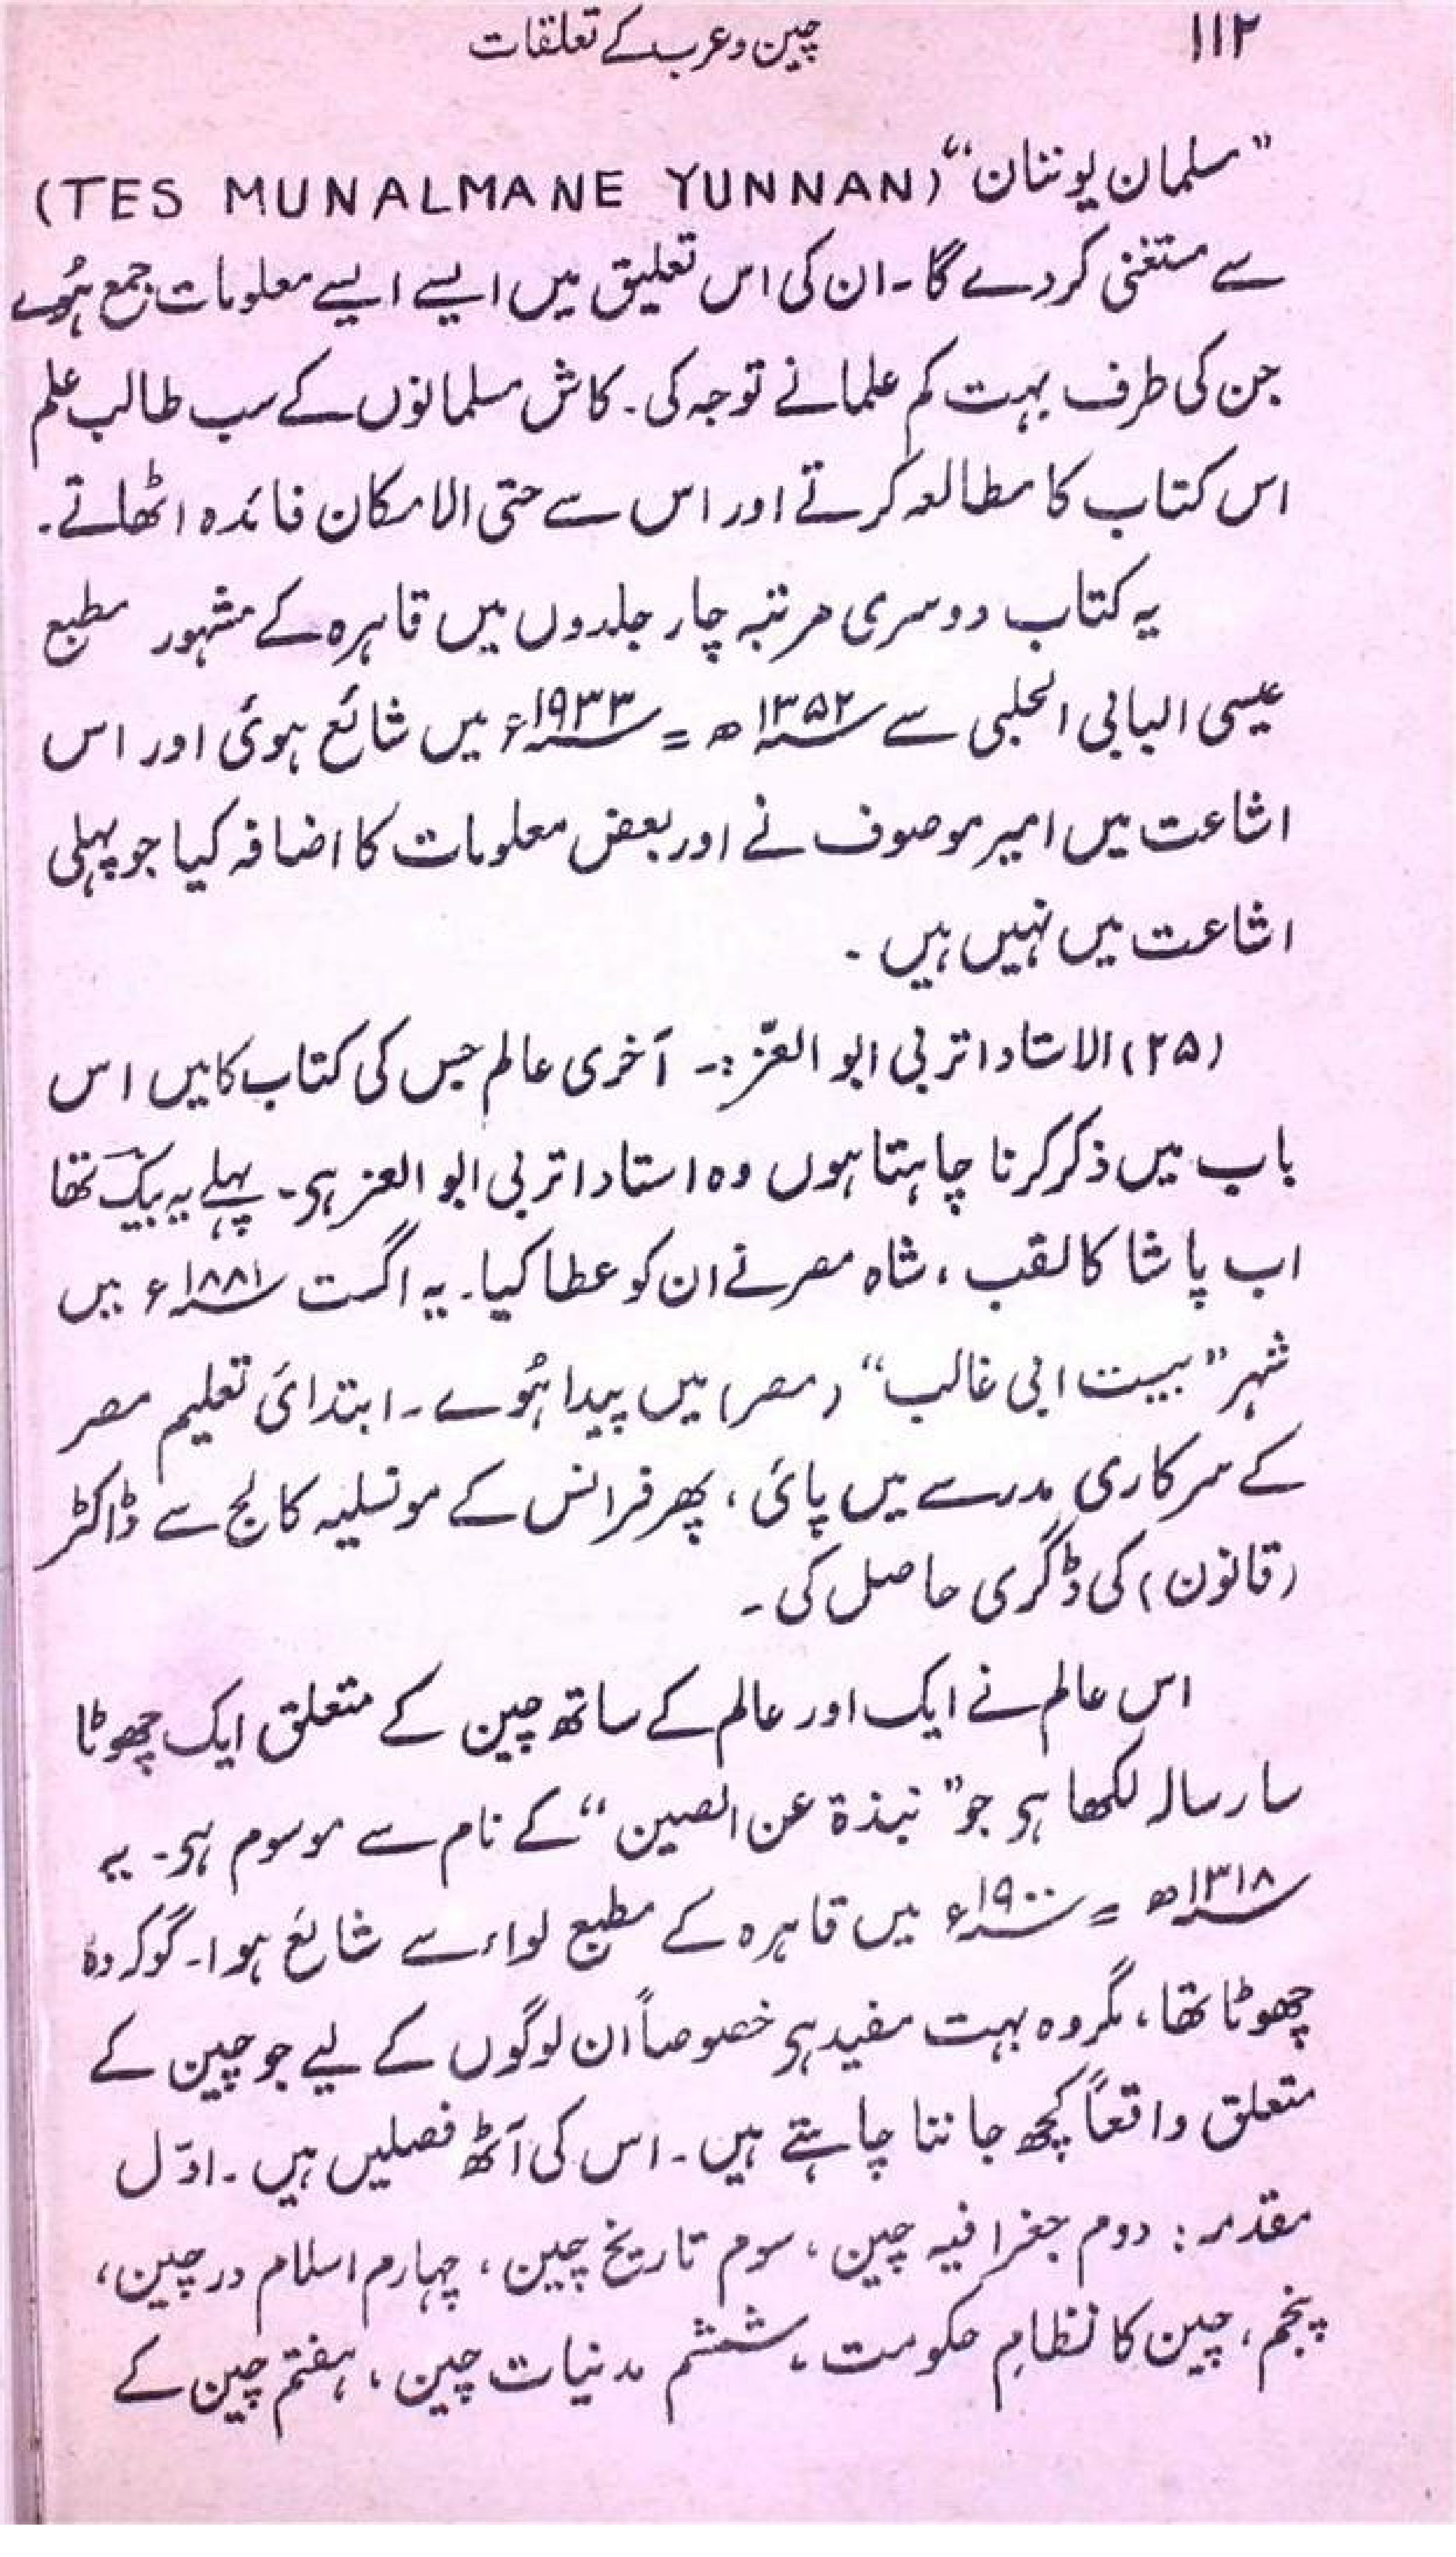 ۱۱۲ چین و عرب کے تعلقات
”مسلمان یوننان“ (TES MUNALMANE YUNNAN)
سے مستغنی کر دے گا۔ ان کی اس تعلیق میں ایسے ایسے معلومات جمع ہُوے
جن کی طرف بہت کم علما نے توجہ کی۔ کاش مسلمانوں کے سب طالب علم
اس کتاب کا مطالعہ کرتے اور اس سے حتی الامکان فائدہ اٹھاتے۔
یہ کتاب دوسری مرتبہ چار جلدوں میں قاہرہ کے مشہور مطبع
عیسی البابی الحلبی سے سنہ ۱۳۵۲ھ = سنہ ۱۹۳۳ء میں شائع ہوئی اور اس
اشاعت میں امیر موصوف نے اور بعض معلومات کا اضافہ کیا جو پہلی
اشاعت میں نہیں ہیں۔
(۲۵) الاستاد اتربی ابو العزّ :۔ آخری عالم جس کی کتاب کا میں اس
باب میں ذکر کرنا چاہتا ہوں وہ استاد اتربی ابو العز ہی۔ پہلے یہ بیک تھا
اب پاشا کا لقب، شاہ مصر نے ان کو عطا کیا۔ یہ اگست سنہ ۱۸۸۱ء میں
شہر ”بیت ابی غالب“ (مصر) میں پیدا ہُوے۔ ابتدائی تعلیم مصر
کے سرکاری مدرسے میں پائی، پھر فرانس کے مونسلیہ کالج سے ڈاکٹر
(قانون) کی ڈگری حاصل کی۔
اس عالم نے ایک اور عالم کے ساتھ چین کے متعلق ایک چھوٹا
سا رسالہ لکھا ہی جو ”نبذة عن الصین“ کے نام سے موسوم ہی۔ یہ
سنہ ۱۳۱۸ھ = سنہ ۱۹۰۰ء میں قاہرہ کے مطبع لواء سے شائع ہوا۔ گو کہ وہ
چھوٹا تھا، مگر وہ بہت مفید ہی خصوصاً ان لوگوں کے لیے جو چین کے
متعلق واقعاً کچھ جاننا چاہتے ہیں۔ اس کی آٹھ فصلیں ہیں۔ اوّل
مقدمہ: دوم جغرافیہ چین، سوم تاریخ چین، چہارم اسلام در چین،
پنجم، چین کا نظامِ حکومت، ششم مدنیات چین، ہفتم چین کے